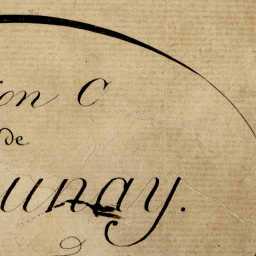 ion C
de
unay.